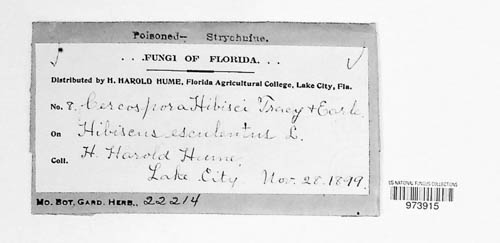 Poisoned— Strychnine.
. . .FUNGI OF FLORIDA. . .
Distributed by H. HAROLD HUME, Florida Agricultural College, Lake City, Fla.
No. 8. Cercospora Hibisci Tracy & Earle
On Hibiscus esculentus L.
Coll. H. Harold Hume,
Lake City Nov. 28. 1899.
MO. BOT. GARD. HERB., 22214
US NATIONAL FUNGUS COLLECTIONS
973915